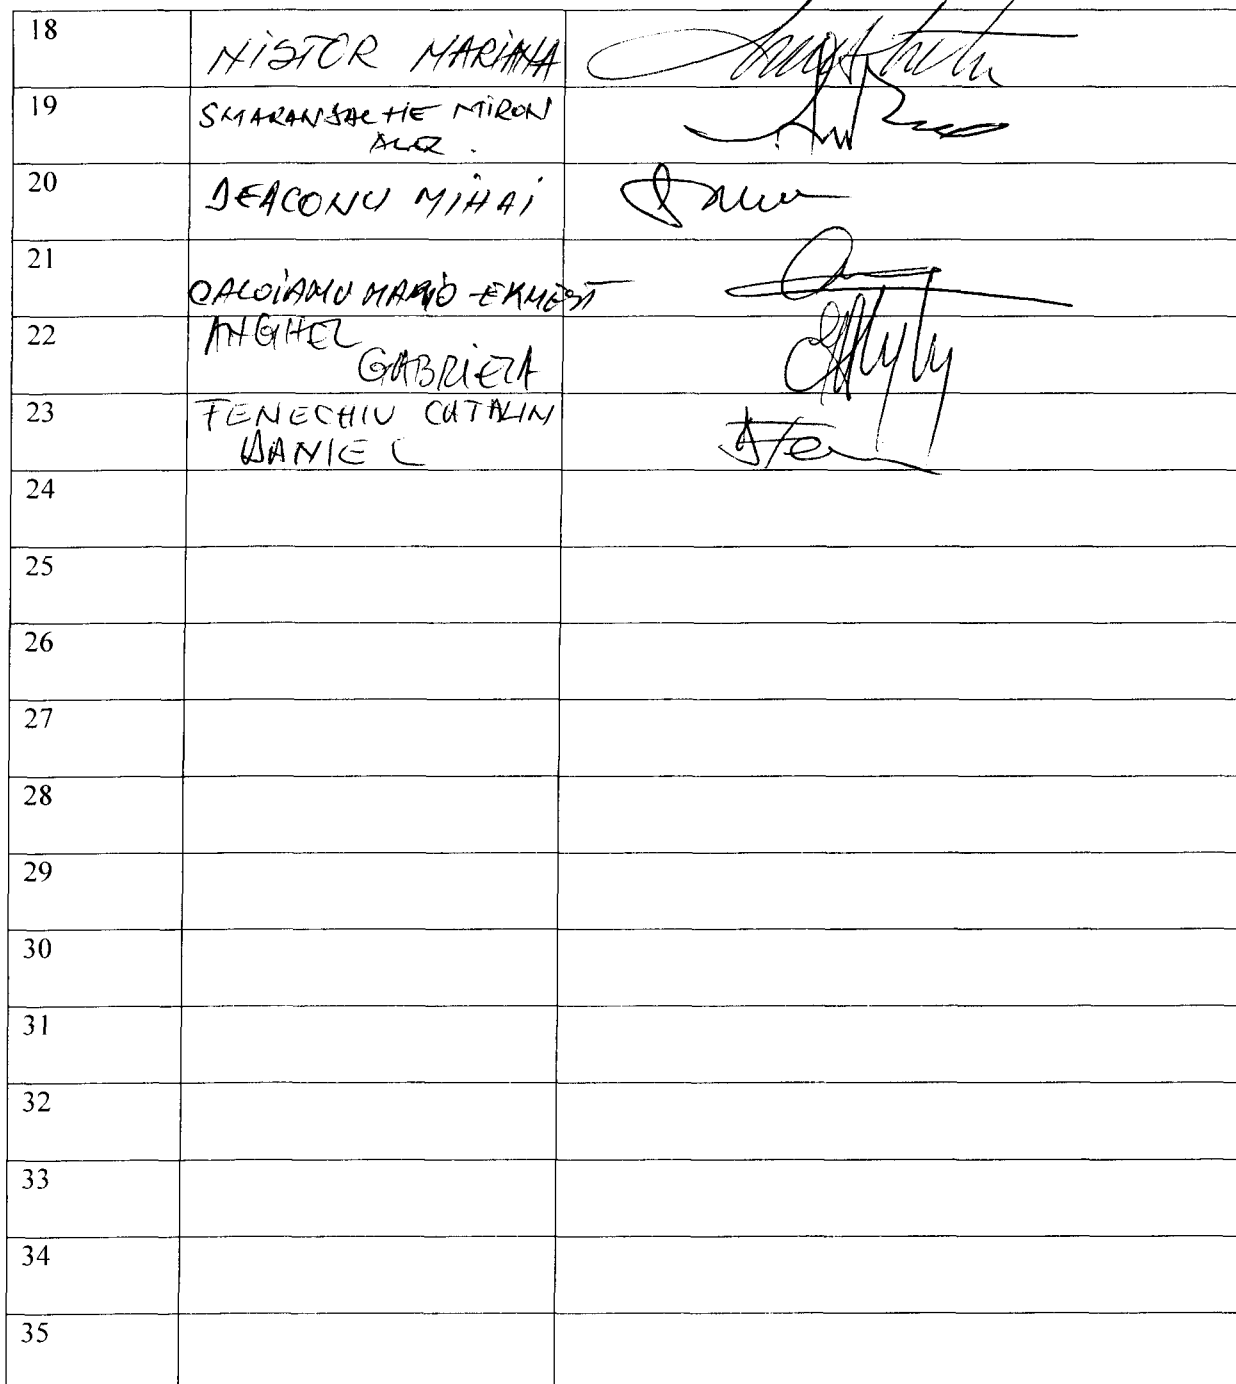 18 NISTOR MARIANA
19 SMARANDACHE MIRON
ALEX.
20 DEACONU MIHAI
21 OALOIANU MARIO-ERNEST
22 ANGHEL
GABRIELA
23 FENECHIU CATALIN
DANIEL
24
25
26
27
28
29
30
31
32
33
34
35